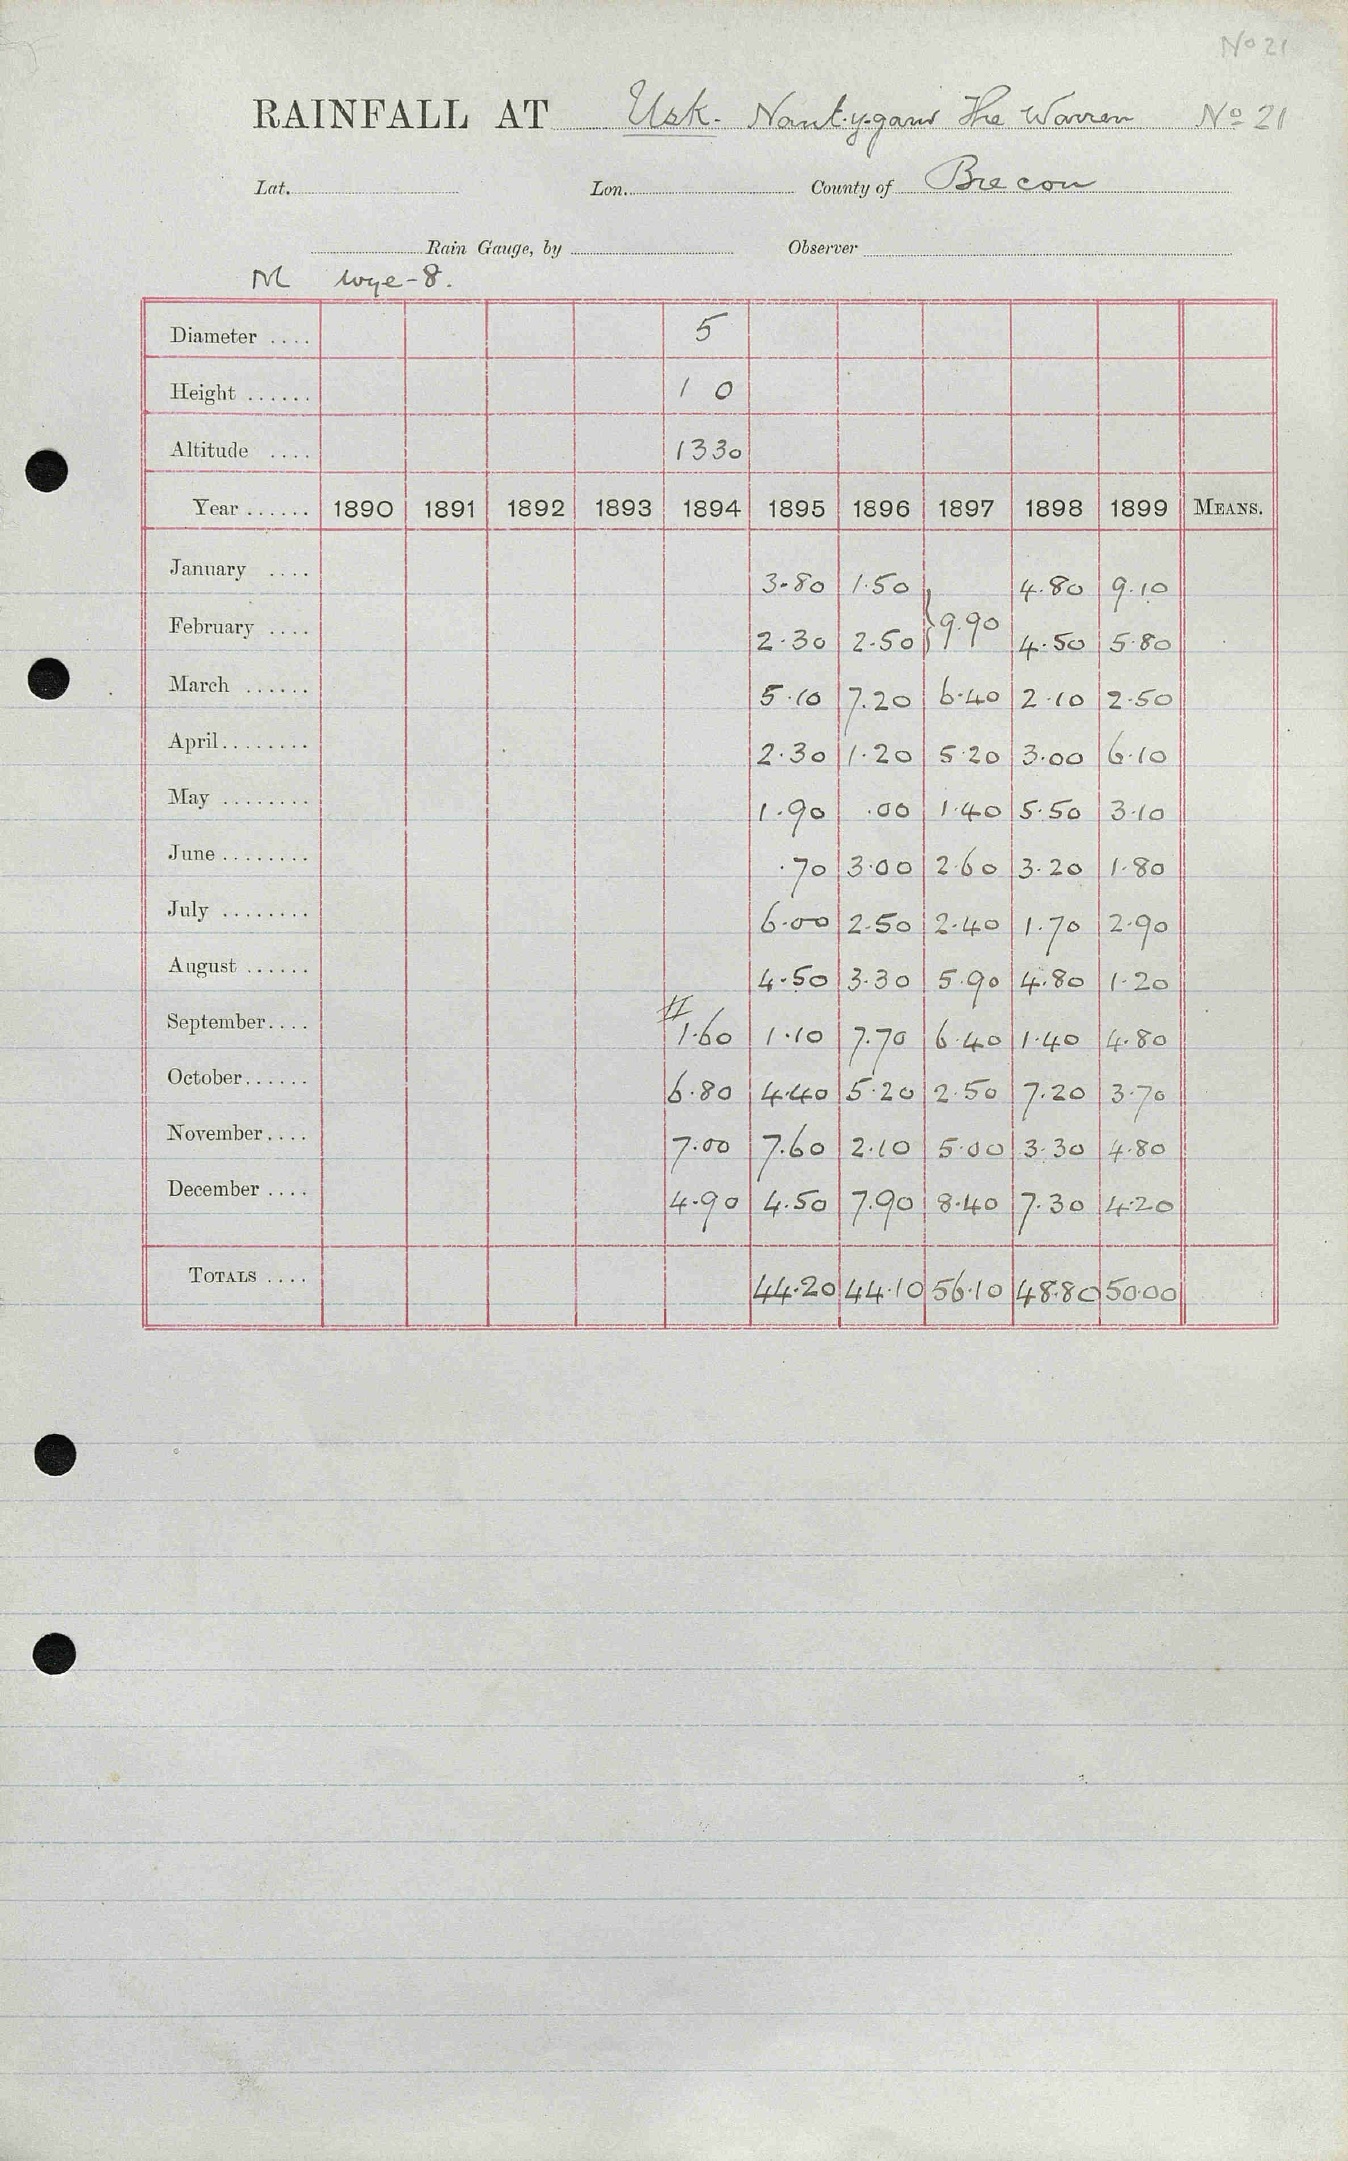 No 21
RAINFALL AT Usk. Nant-y-gaws The Warren No 21
Lat. Lon. County of Brecon
Rain Gauge, by Observer
M wye-8.
Diameter .... 5
Height ...... 1 0
Altitude .... 1330
Year ...... 1890 1891 1892 1893 1894 1895 1896 1897 1898 1899 MEANS.
January .... 3.80 1.50 4.80 9.10
February .... 2.30 2.50 } 9.90 4.50 5.80
March ...... 5.10 7.20 6.40 2.10 2.50
April ........ 2.30 1.20 5.20 3.00 6.10
May ........ 1.90 .00 1.40 5.50 3.10
June ........ .70 3.00 2.60 3.20 1.80
July ........ 6.00 2.50 2.40 1.70 2.90
August ...... 4.50 3.30 5.90 4.80 1.20
September.... # 1.60 1.10 7.70 6.40 1.40 4.80
October...... 6.80 4.40 5.20 2.50 7.20 3.70
November.... 7.00 7.60 2.10 5.00 3.30 4.80
December .... 4.90 4.50 7.90 8.40 7.30 4.20
TOTALS .... 44.20 44.10 56.10 48.80 50.00